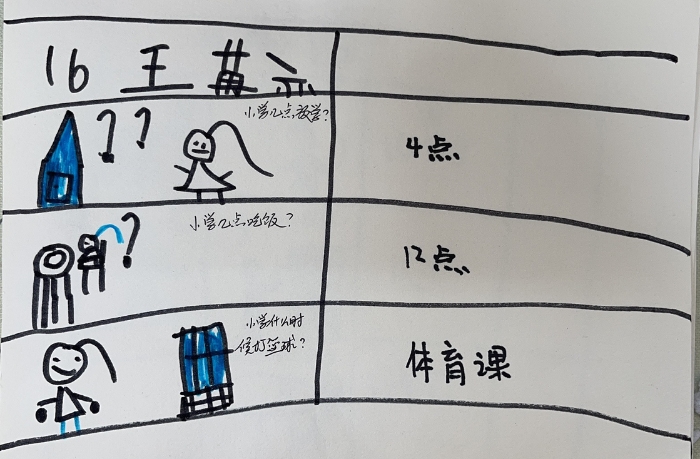 16 王
小学几点放学?
4点
小学几点吃饭?
12点
小学什么时
候打篮球?
体育课